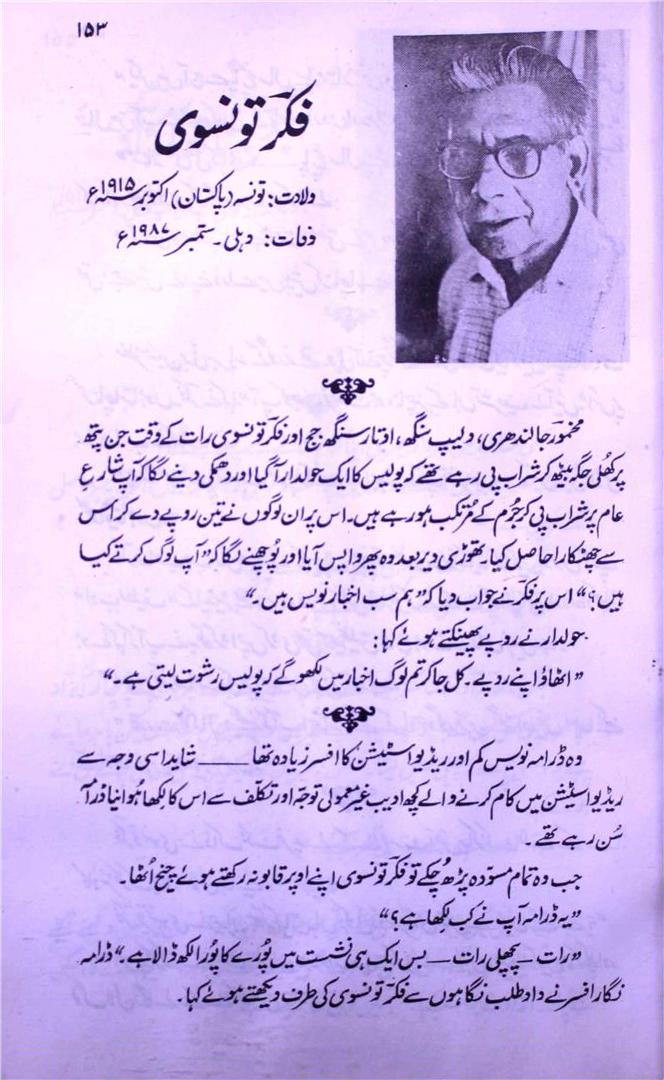 ۱۵۳
فکر تونسوی
ولادت: تونسہ (پاکستان) اکتوبر ۱۹۱۵ء
وفات: دہلی۔ ستمبر ۱۹۸۷ء
مخمور جالندھری، دلیپ سنگھ، اوتار سنگھ جج اور فکر تونسوی رات کے وقت جن پتھ
پر کھلی جگہ بیٹھ کر شراب پی رہے تھے کہ پولیس کا ایک حولدار آگیا اور دھمکی دینے لگا کہ آپ شارعِ
عام پر شراب پی کر جُرم کے مُرتکب ہو رہے ہیں۔ اس پر ان لوگوں نے تین روپے دے کر اس
سے چھٹکارا حاصل کیا۔ تھوڑی دیر بعد وہ پھر واپس آیا اور پُوچھنے لگا کہ "آپ لوگ کرتے کیا
ہیں؟" اس پر فکر نے جواب دیا کہ "ہم سب اخبار نویس ہیں۔"
حولدار نے روپے پھینکتے ہوئے کہا:
"اٹھاؤ اپنے روپے۔ کل جا کر تم لوگ اخبار میں لکھو گے کہ پولیس رشوت لیتی ہے۔"
وہ ڈرامہ نویس کم اور ریڈیو اسٹیشن کا افسر زیادہ تھا ــــــ شاید اسی وجہ سے
ریڈیو اسٹیشن میں کام کرنے والے کچھ ادیب غیر معمولی توجّہ اور تکلف سے اس کا لکھا ہُوا نیا ڈرامہ
سُن رہے تھے۔
جب وہ تمام مسوّدہ پڑھ چُکے تو فکر تونسوی اپنے اوپر قابو نہ رکھتے ہوئے چیخ اُٹھا۔
"یہ ڈرامہ آپ نے کب لکھا ہے؟"
"رات ـــ پچھلی رات ـــ بس ایک ہی نشست میں پُورے کا پورا لکھ ڈالا ہے۔" ڈرامہ
نگار افسر نے داد طلب نگاہوں سے فکر تونسوی کی طرف دیکھتے ہوئے کہا۔